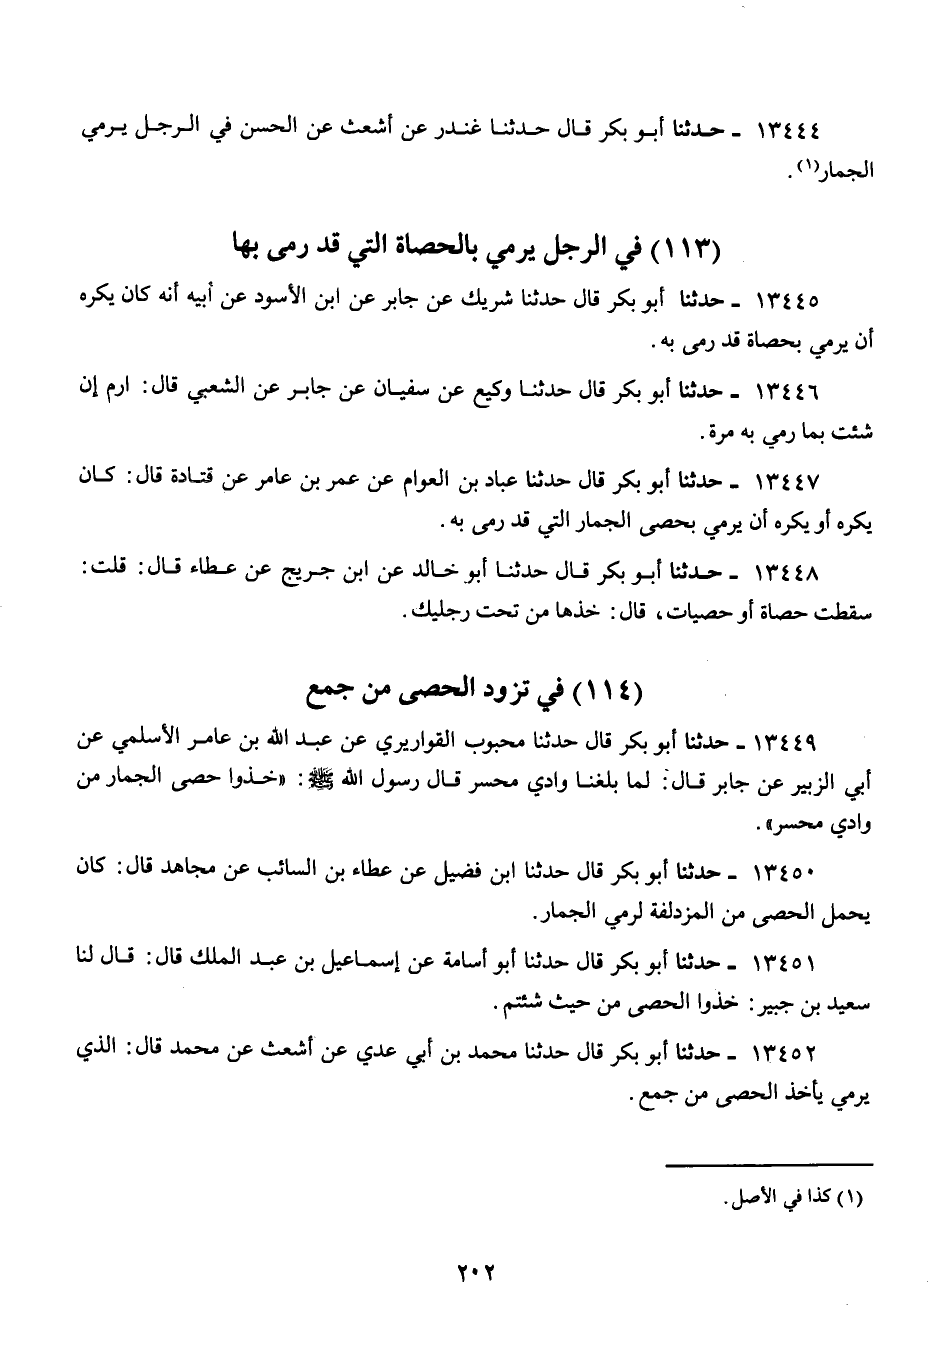 ١٣٤٤٤ ـ حدثنا أبو بكر قال حدثنا غندر عن أشعث عن الحسن في الرجل يرمي
الجمار(١).
(١١٣) في الرجل يرمي بالحصاة التي قد رمى بها
١٣٤٤٥ ـ حدثنا أبو بكر قال حدثنا شريك عن جابر عن ابن الأسود عن أبيه أنه كان يكره
أن يرمي بحصاة قد رمى به.
١٣٤٤٦ ـ حدثنا أبو بكر قال حدثنا وكيع عن سفيان عن جابر عن الشعبي قال: ارم إن
شئت بما رمي به مرة.
١٣٤٤٧ ـ حدثنا أبو بكر قال حدثنا عباد بن العوام عن عمر بن عامر عن قتادة قال: كان
يكره أو يكره أن يرمي بحصى الجمار التي قد رمى به.
١٣٤٤٨ ـ حدثنا أبو بكر قال حدثنا أبو خالد عن ابن جريج عن عطاء قال: قلت:
سقطت حصاة أو حصيات، قال: خذها من تحت رجليك.
(١١٤) في تزود الحصى من جمع
١٣٤٤٩ ـ حدثنا أبو بكر قال حدثنا محبوب القواريري عن عبد الله بن عامر الأسلمي عن
أبي الزبير عن جابر قال: لما بلغنا وادي محسر قال رسول الله ﷺ: «خذوا حصى الجمار من
وادي محسر».
١٣٤٥٠ ـ حدثنا أبو بكر قال حدثنا ابن فضيل عن عطاء بن السائب عن مجاهد قال: كان
يحمل الحصى من المزدلفة لرمي الجمار.
١٣٤٥١ ـ حدثنا أبو بكر قال حدثنا أبو أسامة عن إسماعيل بن عبد الملك قال: قال لنا
سعيد بن جبير: خذوا الحصى من حيث شئتم.
١٣٤٥٢ ـ حدثنا أبو بكر قال حدثنا محمد بن أبي عدي عن أشعث عن محمد قال: الذي
يرمي يأخذ الحصى من جمع.
(١) كذا في الأصل.
٢٠٢